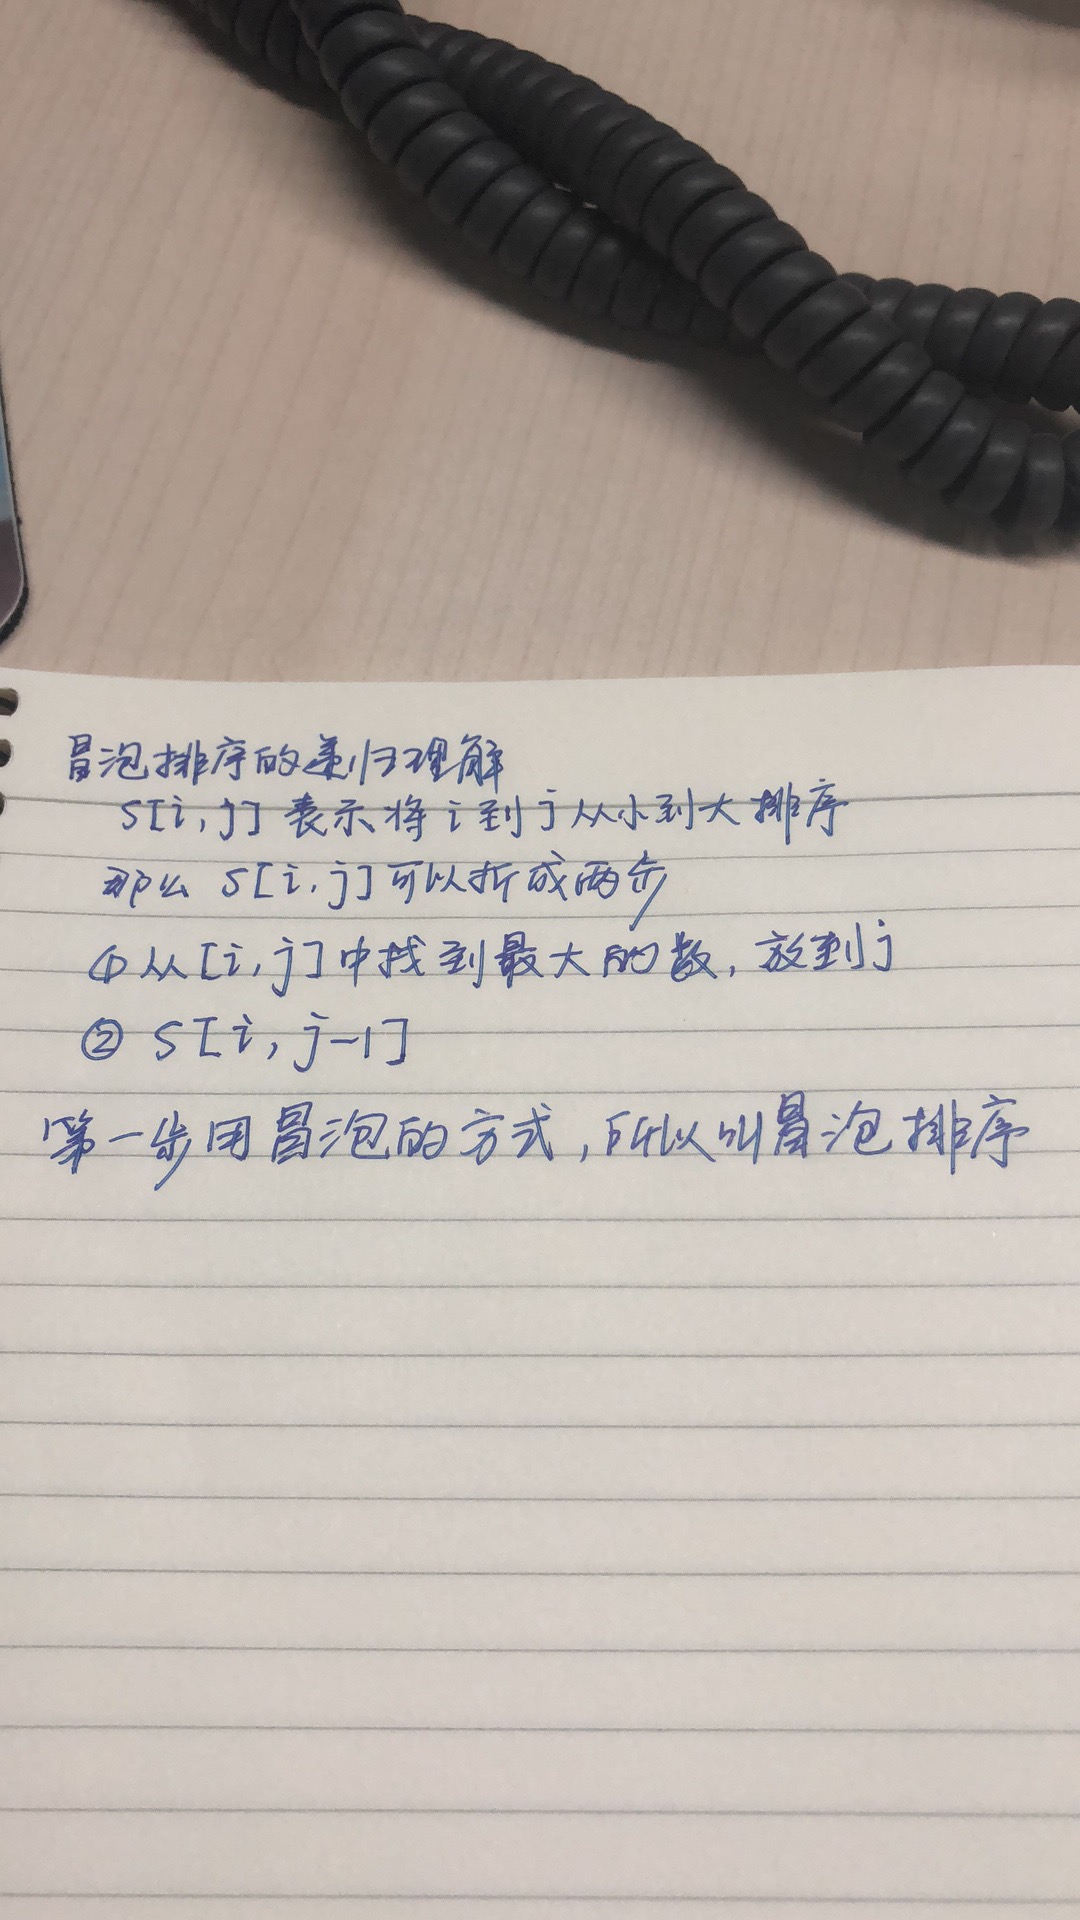 冒泡排序的递归理解
S[i,j] 表示将 i 到 j 从小到大排序
那么 S[i,j] 可以拆成两步
① 从 [i,j] 中找到最大的数, 放到 j
② S[i, j-1]
第一步用冒泡的方式, 所以叫冒泡排序